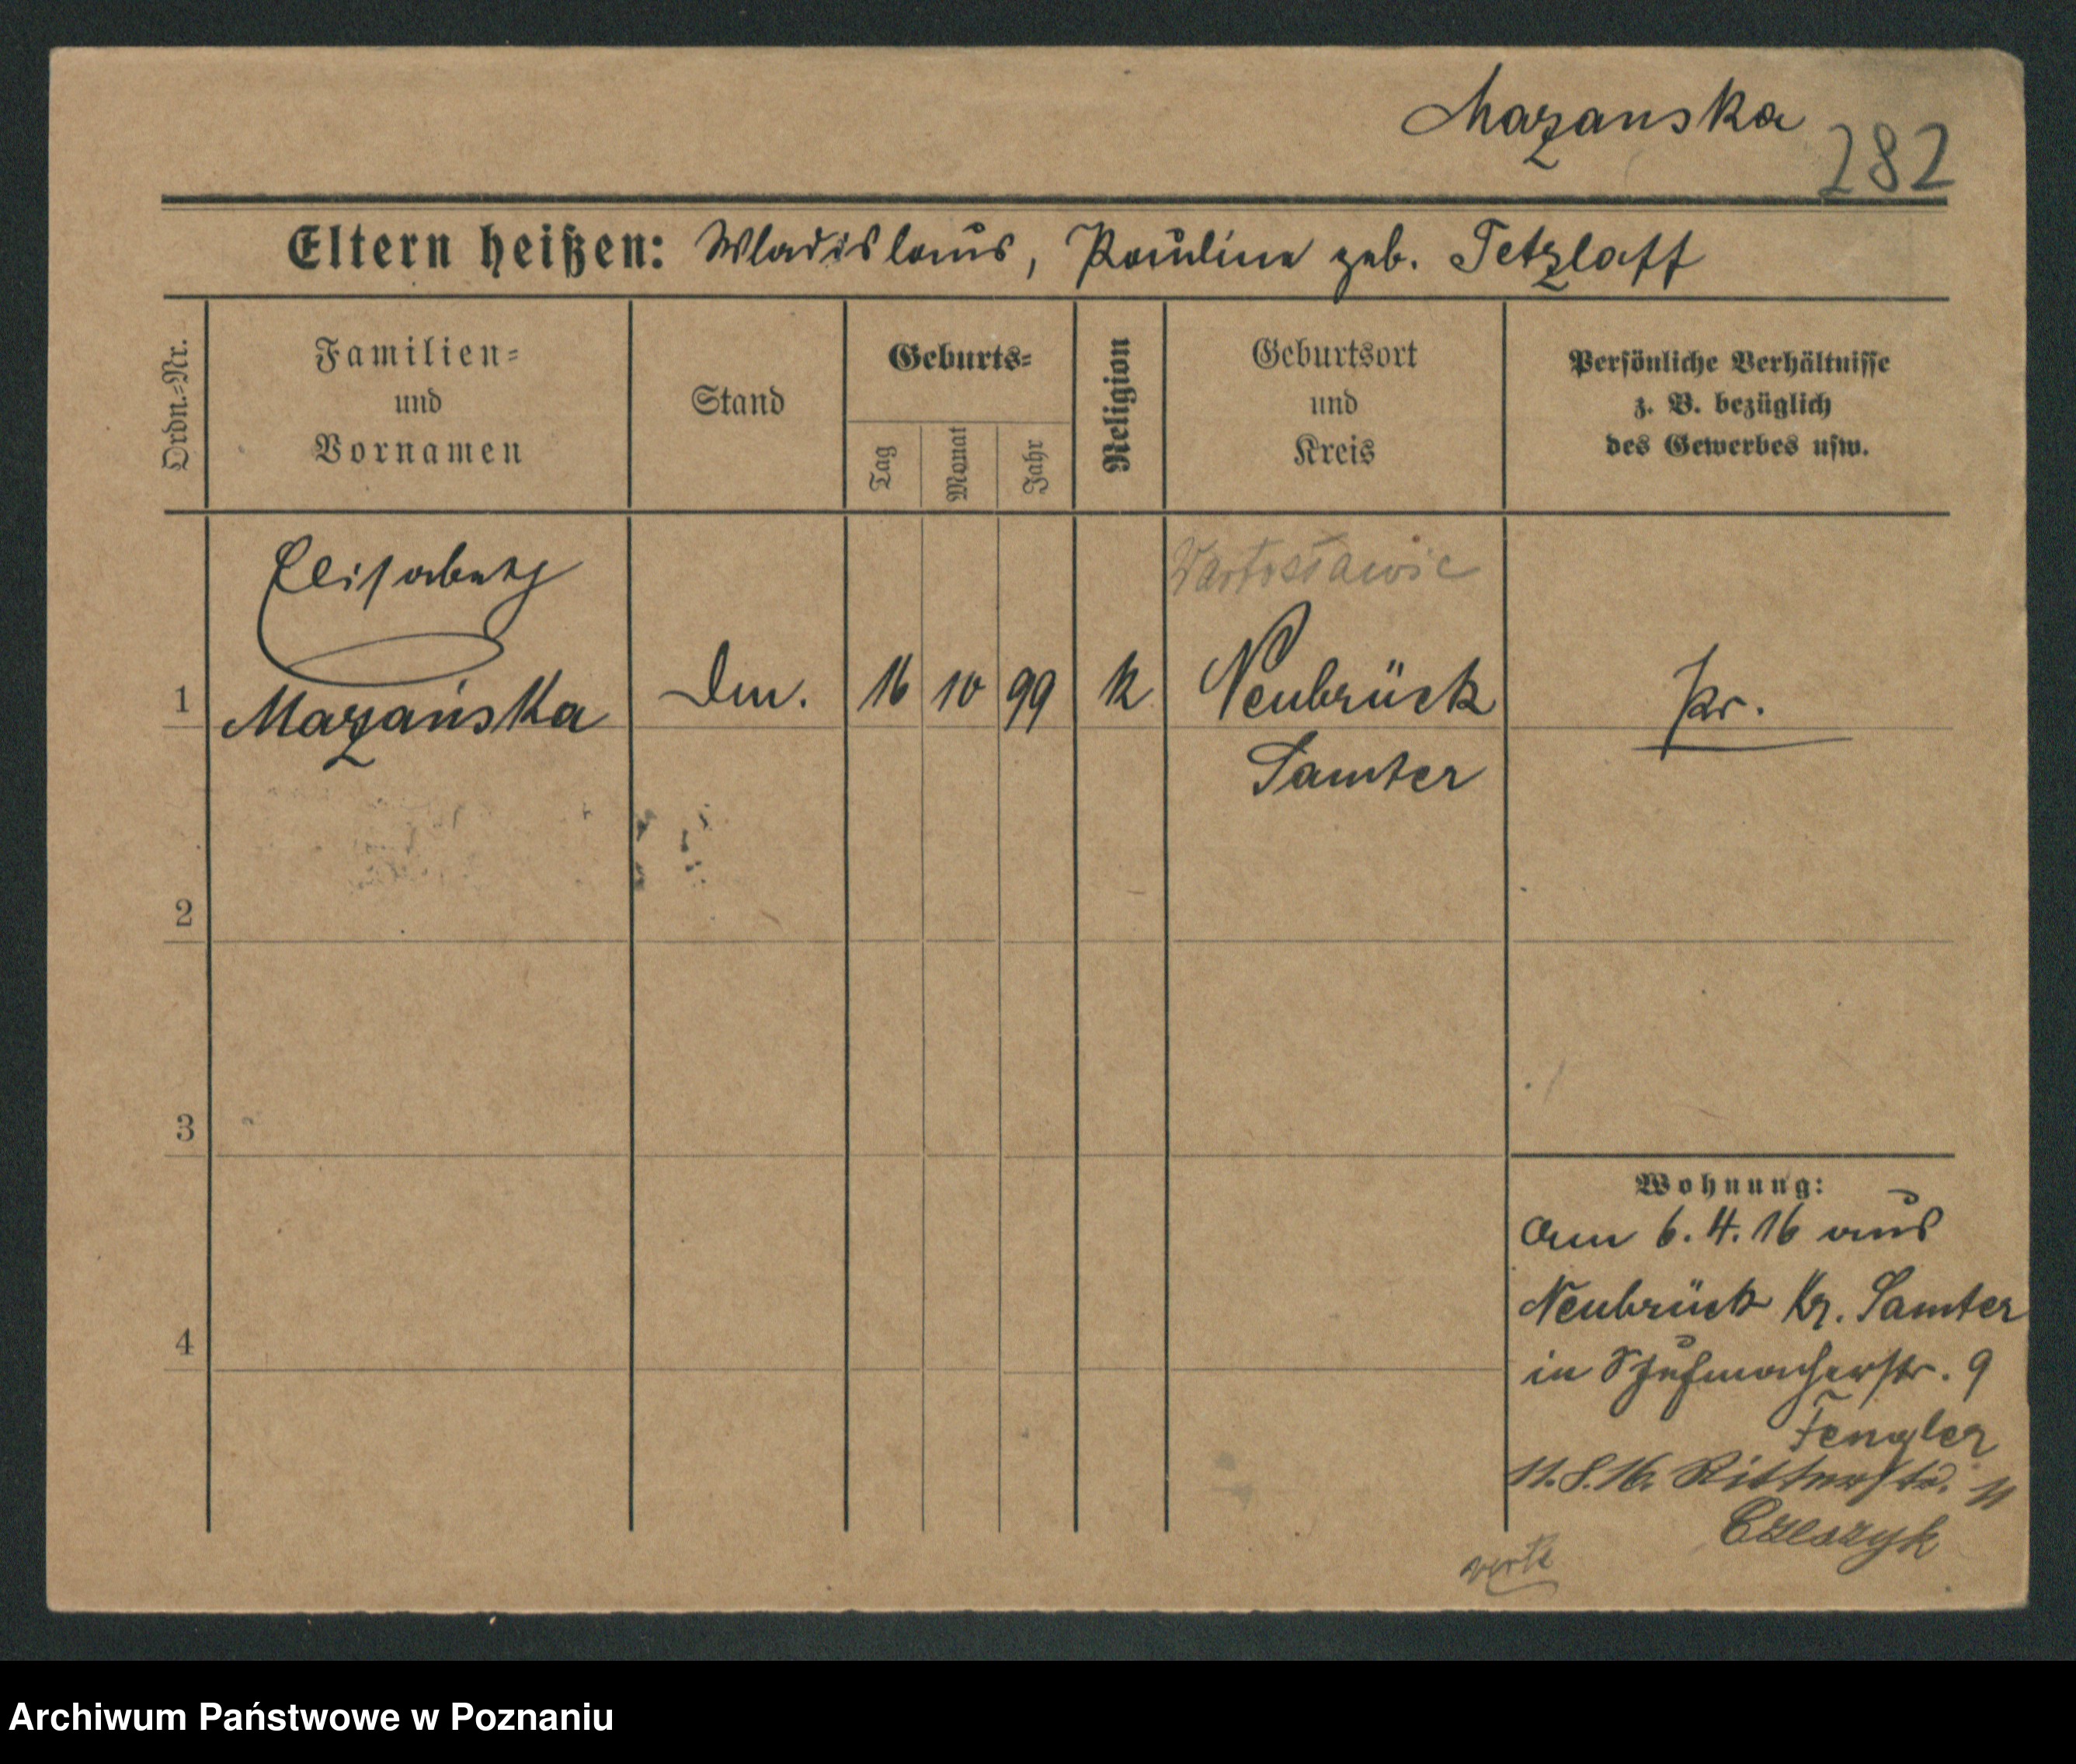 Mazanska
282
Eltern heißen: Wladislaus, Pauline geb. Tetzlaff
Ordn.-Nr.
Familien-
und
Vornamen
Stand
Geburts-
Tag
Monat
Jahr
Religion
Geburtsort
und
Kreis
Persönliche Verhältnisse
z. B. bezüglich
des Gewerbes usw.
Elisabeth
Wartosławie
1 Mazańska
16 10 99 k Neubrück
Pr.
Samter
2
3
4
Wohnung:
Am 6.4.16 aus
Neubrück Kr. Samter
in Schuhmacherstr. 9
Tengler
11.8.16. Ritterstr. 11